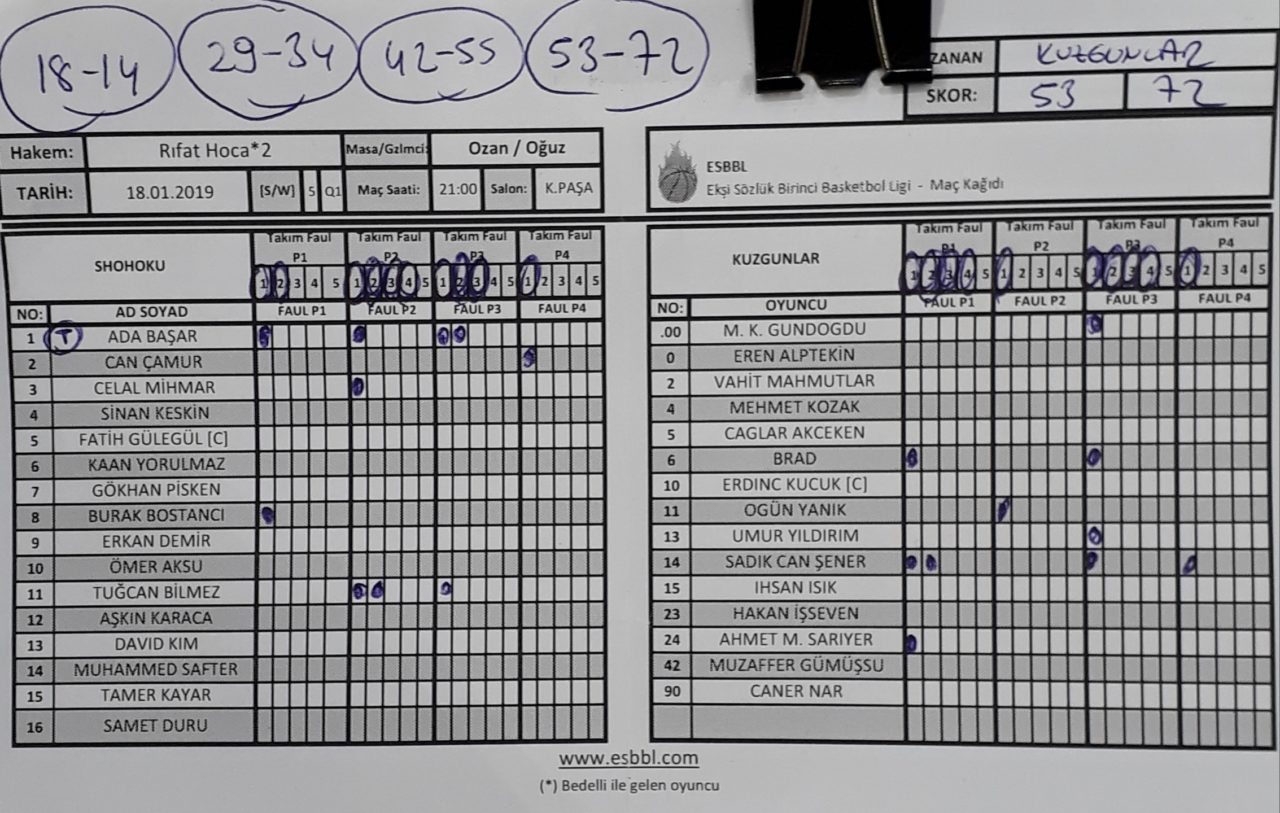 18-14 29-34 42-55 53-72
ZANAN KUZGUNLAR
SKOR: 53 72
Hakem: Rıfat Hoca*2 Masa/Gzlmci: Ozan / Oğuz
TARİH: 18.01.2019 [S/W] 5 Q1 Maç Saati: 21:00 Salon: K.PAŞA
ESBBL
Ekşi Sözlük Birinci Basketbol Ligi - Maç Kağıdı
SHOHOKU
Takım Faul Takım Faul Takım Faul Takım Faul
P1 P2 P3 P4
1 2 3 4 5 1 2 3 4 5 1 2 3 4 5 1 2 3 4 5
NO: AD SOYAD FAUL P1 FAUL P2 FAUL P3 FAUL P4
1 T ADA BAŞAR
2 CAN ÇAMUR
3 CELAL MİHMAR
4 SİNAN KESKİN
5 FATİH GÜLEGÜL [C]
6 KAAN YORULMAZ
7 GÖKHAN PİSKEN
8 BURAK BOSTANCI
9 ERKAN DEMİR
10 ÖMER AKSU
11 TUĞCAN BİLMEZ
12 AŞKIN KARACA
13 DAVID KIM
14 MUHAMMED SAFTER
15 TAMER KAYAR
16 SAMET DURU
KUZGUNLAR
Takım Faul Takım Faul Takım Faul Takım Faul
P1 P2 P3 P4
1 2 3 4 5 1 2 3 4 5 1 2 3 4 5 1 2 3 4 5
NO: OYUNCU FAUL P1 FAUL P2 FAUL P3 FAUL P4
.00 M. K. GUNDOGDU
0 EREN ALPTEKİN
2 VAHİT MAHMUTLAR
4 MEHMET KOZAK
5 CAGLAR AKCEKEN
6 BRAD
10 ERDINC KUCUK [C]
11 OGÜN YANIK
13 UMUR YILDIRIM
14 SADIK CAN ŞENER
15 IHSAN ISIK
23 HAKAN İŞSEVEN
24 AHMET M. SARIYER
42 MUZAFFER GÜMÜŞSU
90 CANER NAR
www.esbbl.com
(*) Bedelli ile gelen oyuncu